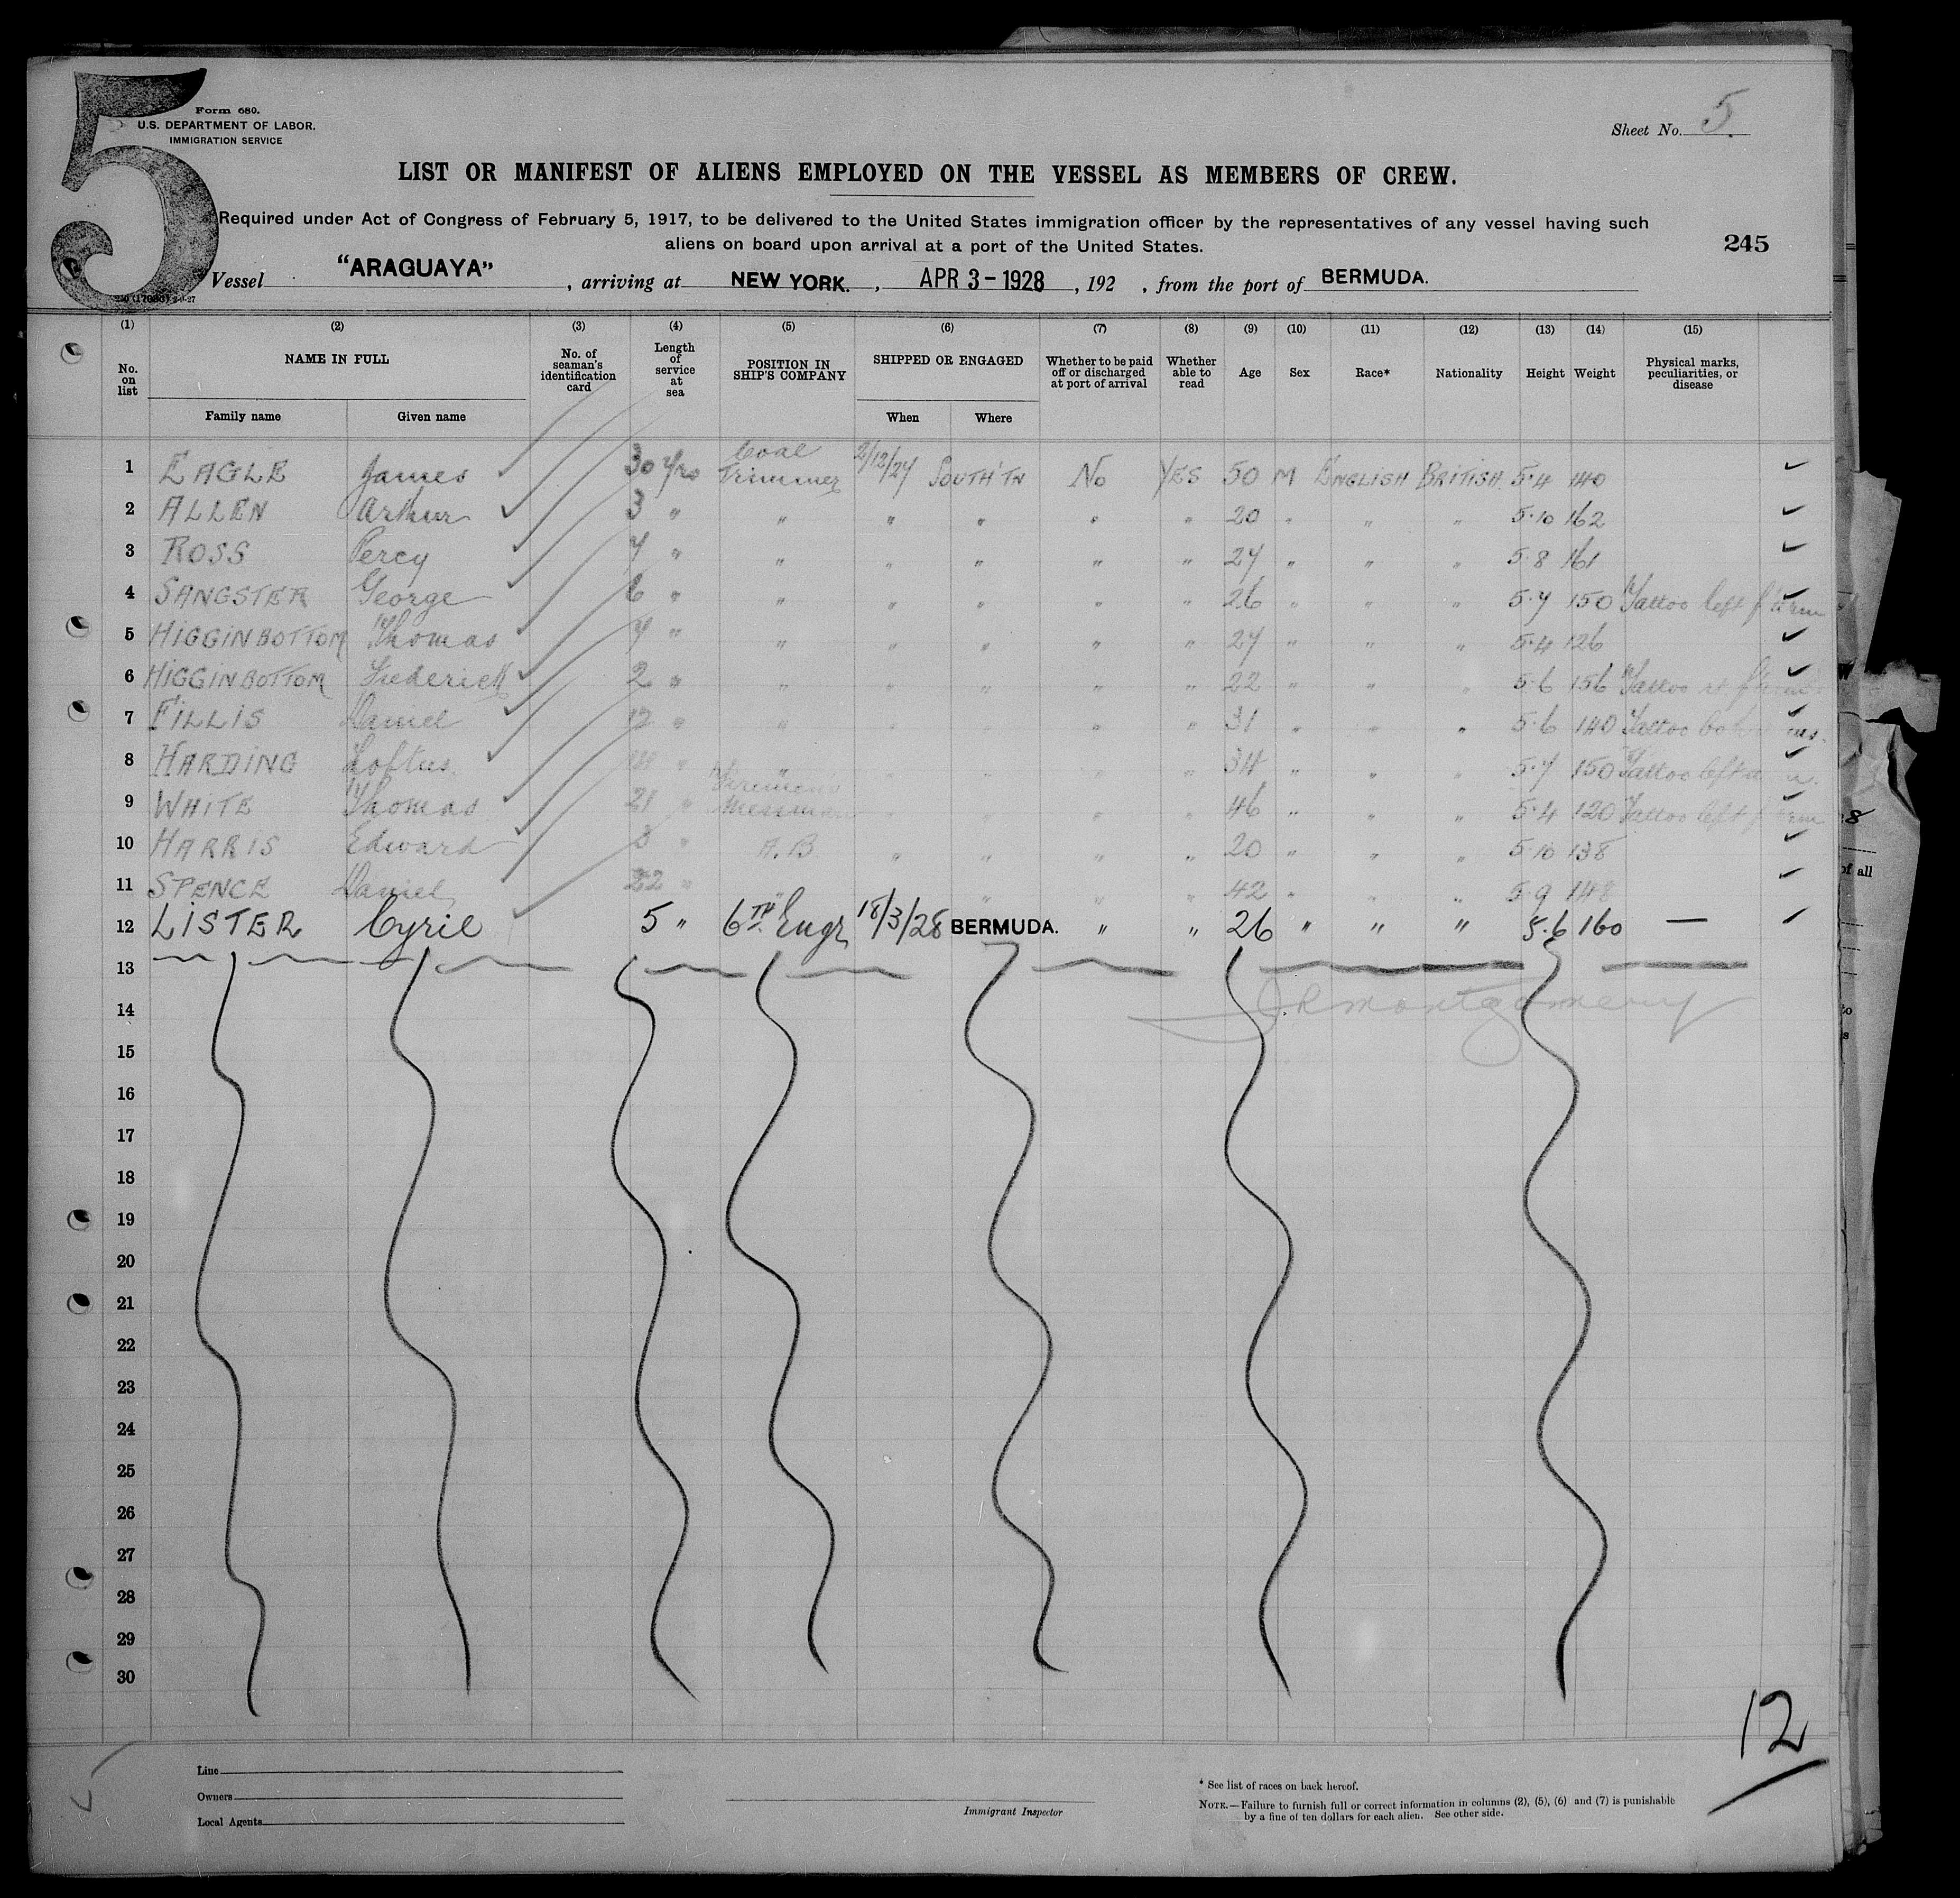 5
Form 680.
U.S. DEPARTMENT OF LABOR.
IMMIGRATION SERVICE
Sheet No. 5.
LIST OR MANIFEST OF ALIENS EMPLOYED ON THE VESSEL AS MEMBERS OF CREW.
Required under Act of Congress of February 5, 1917, to be delivered to the United States immigration officer by the representatives of any vessel having such
aliens on board upon arrival at a port of the United States.
245
Vessel "ARAGUAYA" , arriving at NEW YORK. , APR 3 - 1928 , 192 , from the port of BERMUDA.
(1) (2) (3) (4) (5) (6) (7) (8) (9) (10) (11) (12) (13) (14) (15)
No. on list NAME IN FULL Family name Given name No. of seaman's identification card Length of service at sea POSITION IN SHIP'S COMPANY SHIPPED OR ENGAGED When Where Whether to be paid off or discharged at port of arrival Whether able to read Age Sex Race* Nationality Height Weight Physical marks, peculiarities, or disease
1 EAGLE James 30 yrs Coal Trimmer SOUTH'TN No YES 50 M ENGLISH BRITISH. 5.4 140
2 ALLEN Arthur 3 " " " " " " 20 " " " 5.10 162
3 ROSS Percy " " " " " " " 5.8 161
4 SANGSTER George 6 " " " " " " 26 " " " 5.7 150 Tattoo left f'arm
5 HIGGINBOTTOM Thomas " " " " " " " " " 5.4 126
6 HIGGINBOTTOM Frederick 2 " " " " " " 22 " " " 5.6 156 Tattoo rt f'arm
7 FILLIS Daniel 12 " " " " " " 31 " " " 5.6 140 Tattoo both
8 HARDING Loftus " " " " " " 34 " " " 5.7 150 Tattoo left
9 WHITE Thomas 21 " Firemens Messman " " " " 46 " " " 5.4 120 Tattoo left f'arm
10 HARRIS Edward " A.B. " " " " 20 " " " 5.10 138
11 SPENCE Daniel 22 " " " " " " 42 " " " 5.9 148
12 LISTER Cyril 5 " 6TH Engr 18/3/28 BERMUDA. " " 26 " " " 5.6 160 —
13
J R Montgomery
14
15
16
17
18
19
20
21
22
23
24
25
26
27
28
29
30
12
Line
Owners
Local Agents
Immigrant Inspector
* See list of races on back hereof.
NOTE.—Failure to furnish full or correct information in columns (2), (5), (6) and (7) is punishable
by a fine of ten dollars for each alien. See other side.